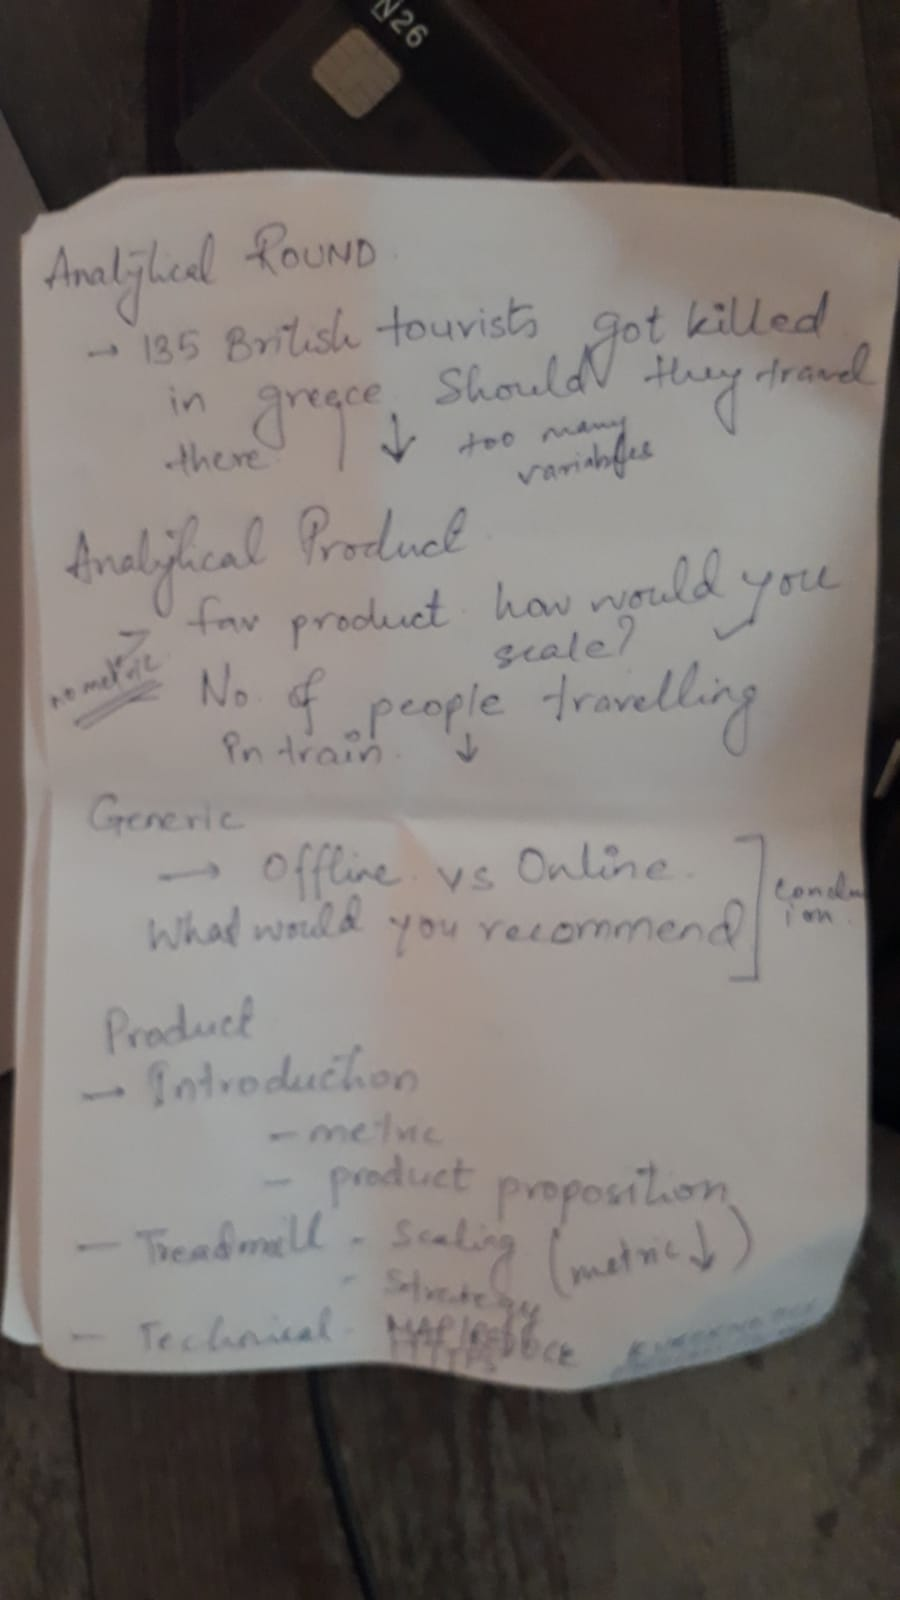 N26
Analytical ROUND
→ 135 British tourists got killed
in greece Should they travel
there ↓ too many
variables
Analytical Product
fav product how would you
scale? ✓
→ no metric
No. of people travelling
in train. ↓
Generic
→ Offline vs Online.
What would you recommend
Product
→ Introduction
- metric
- product proposition
- Treadmill - Scaling (metric ↓)
- Strategy
- Technical -